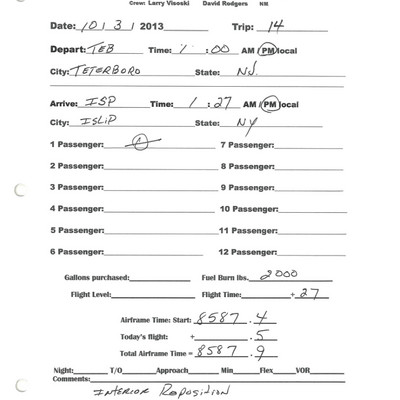 Crew: Larry Visoski David Rodgers NM
Date: 10/3/2013 Trip: 14
Depart: TEB Time: 1:00 AM/PM local
City: TETERBORO State: NJ.
Arrive: ISP Time: 1:27 AM/PM local
City: ISLIP State: NY
1 Passenger: 7 Passenger:
2 Passenger: 8 Passenger:
3 Passenger: 9 Passenger:
4 Passenger: 10 Passenger:
5 Passenger: 11 Passenger:
6 Passenger: 12 Passenger:
Gallons purchased: Fuel Burn lbs. 2000
Flight Level: Flight Time: + 27
Airframe Time: Start: 8587.4
Today's flight: + .5
Total Airframe Time = 8587.9
Night: T/O Approach Min Flex VOR
Comments:
INTERIOR REPOSITION